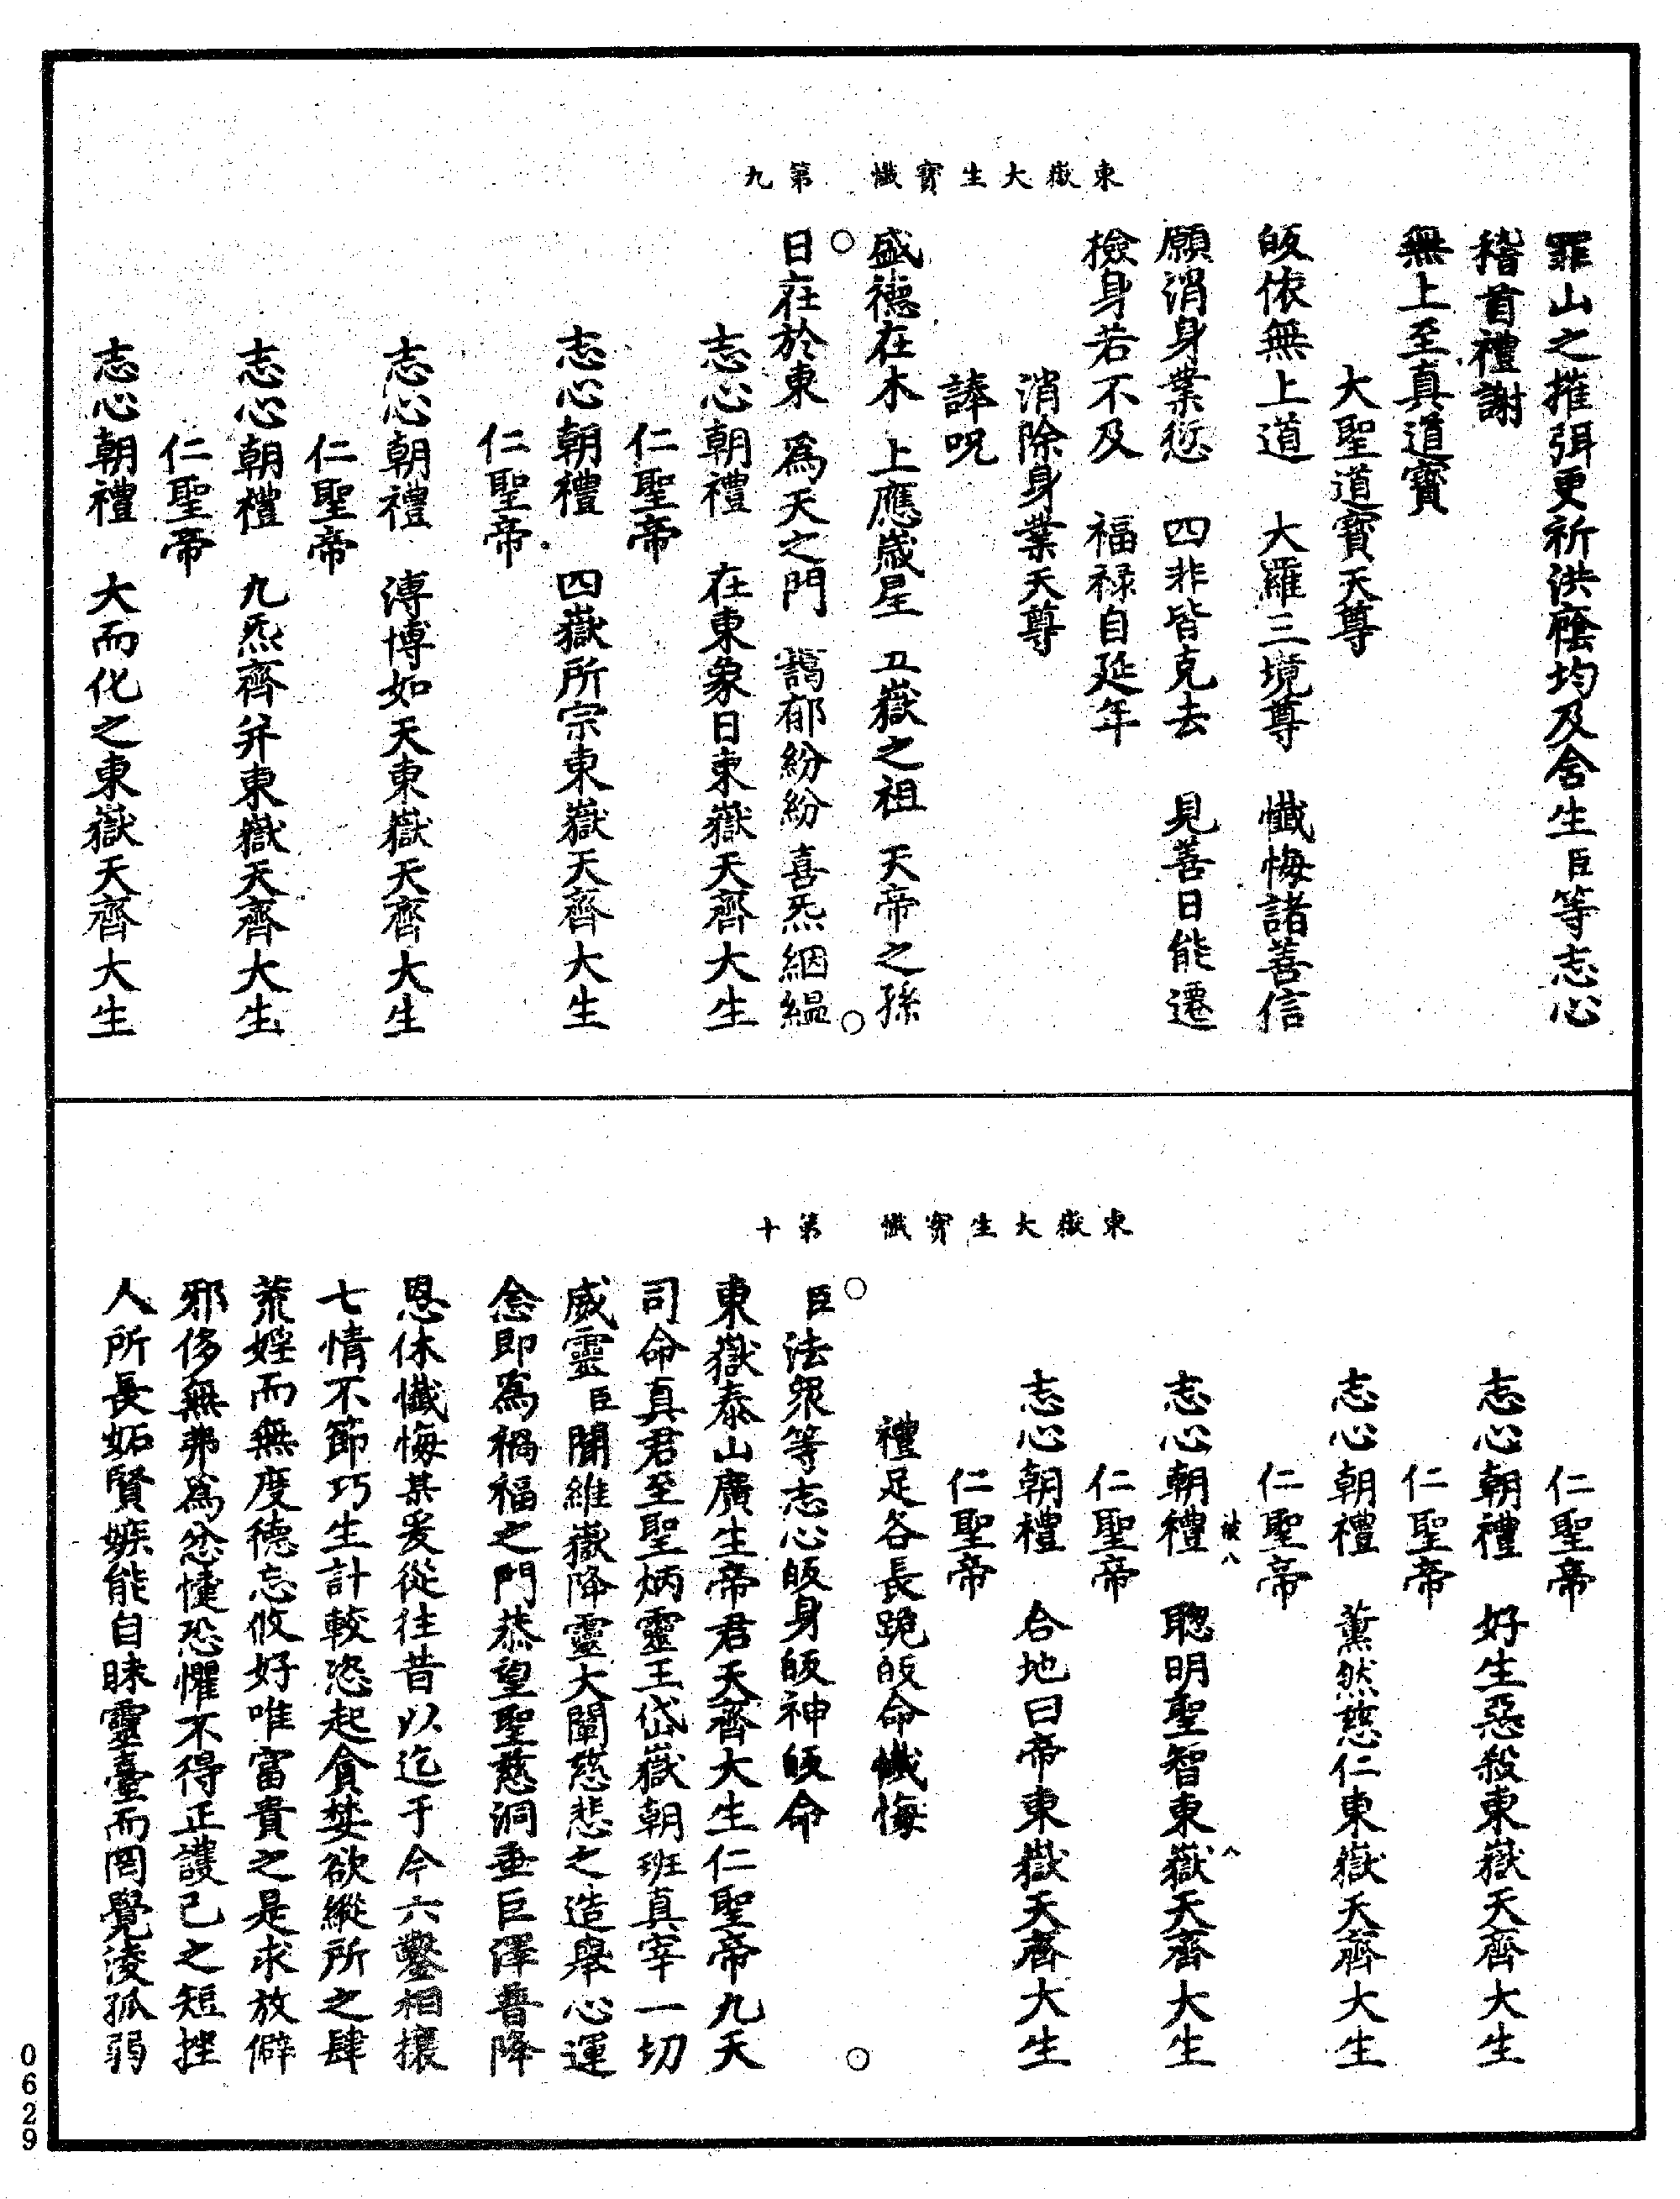 東嶽大生寶懺　第九
罪山之摧弭更祈洪廕均及含生臣等志心
稽首禮謝
無上至真道寶
大聖道寶天尊
皈依無上道　大羅三境尊　懺悔諸善信
願消身業愆　四非皆克去　見善日能遷
檢身若不及　福祿自延年
消除身業天尊
諱呪
盛德在木　上應嵗星　五嶽之祖　天帝之孫
日在於東　為天之門　靄郁紛紛　喜炁絪縕
志心朝禮　在東象日東嶽天齊大生
仁聖帝
志心朝禮　四嶽所宗東嶽天齊大生
仁聖帝
志心朝禮　溥博如天東嶽天齊大生
仁聖帝
志心朝禮　九炁齊并東嶽天齊大生
仁聖帝
志心朝禮　大而化之東嶽天齊大生
東嶽大生寶懺　第十
仁聖帝
志心朝禮　好生惡殺東嶽天齊大生
仁聖帝
志心朝禮　薰然慈仁東嶽天齊大生
仁聖帝
被八　八
志心朝禮　聰明聖智東嶽天齊大生
仁聖帝
志心朝禮　合地曰帝東嶽天齊大生
仁聖帝
禮足各長跪皈命懺悔
臣法眾等志心皈身皈神皈命
東嶽泰山廣生帝君天齊大生仁聖帝九天
司命真君至聖炳靈王岱嶽朝班真宰一切
威靈臣聞維嶽降靈大闡慈悲之造舉心運
念即為禍福之門恭望聖慈洞垂巨澤普降
恩休懺悔某爰從往昔以迄于今六鑿相攘
七情不節巧生計較恣起貪婪欲縱所之肆
荒婬而無度德忘攸好唯富貴之是求放僻
邪侈無弗為忿懥恐懼不得正護己之短挫
人所長妬賢嫉能自昧靈臺而罔覺淩孤弱
0629